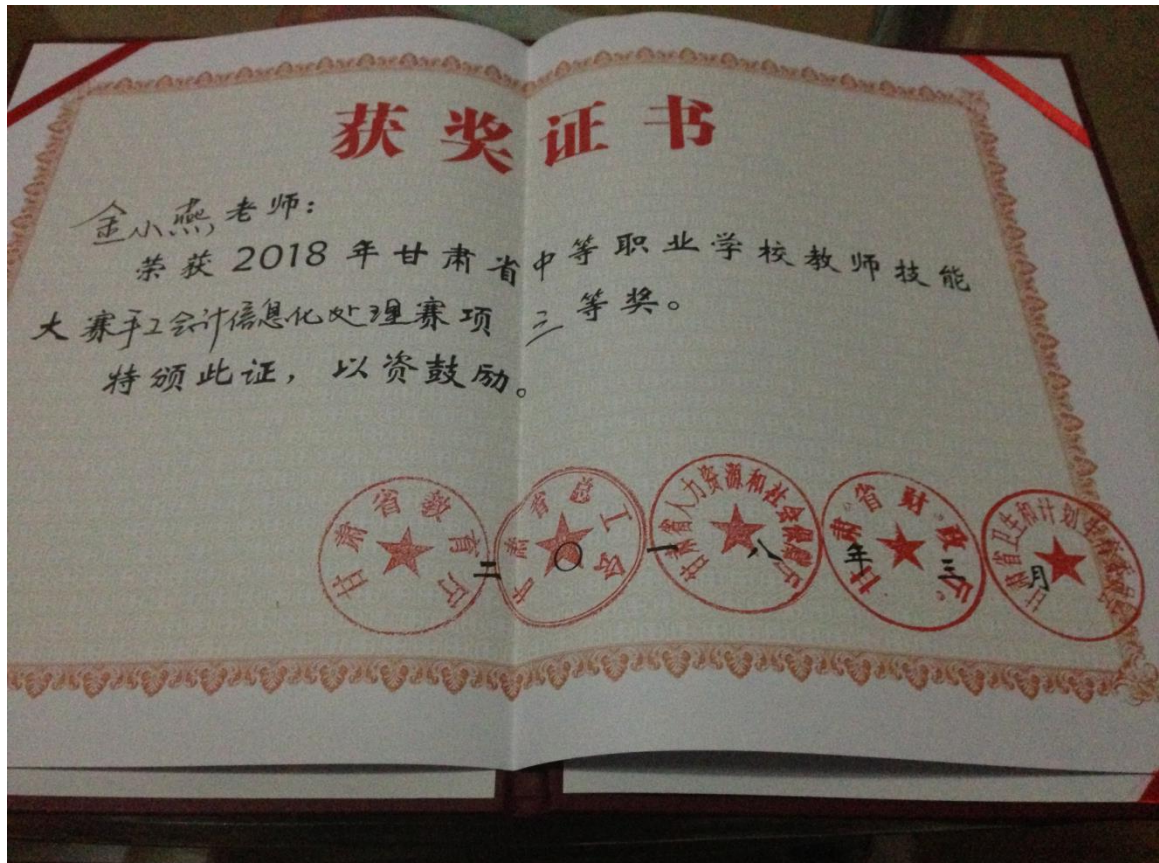 获奖证书
金小燕老师：
荣获2018年甘肃省中等职业学校教师技能
大赛手工会计信息化处理赛项三等奖。
特颁此证，以资鼓励。
甘肃省教育厅
甘肃省总工会
甘肃省人力资源和社会保障厅
甘肃省财政厅
甘肃省卫生和计划生育委员会
二〇一八年三月